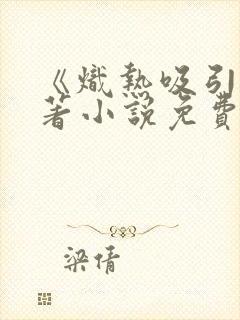 《熾熱吸引
著小說免費
梁倩